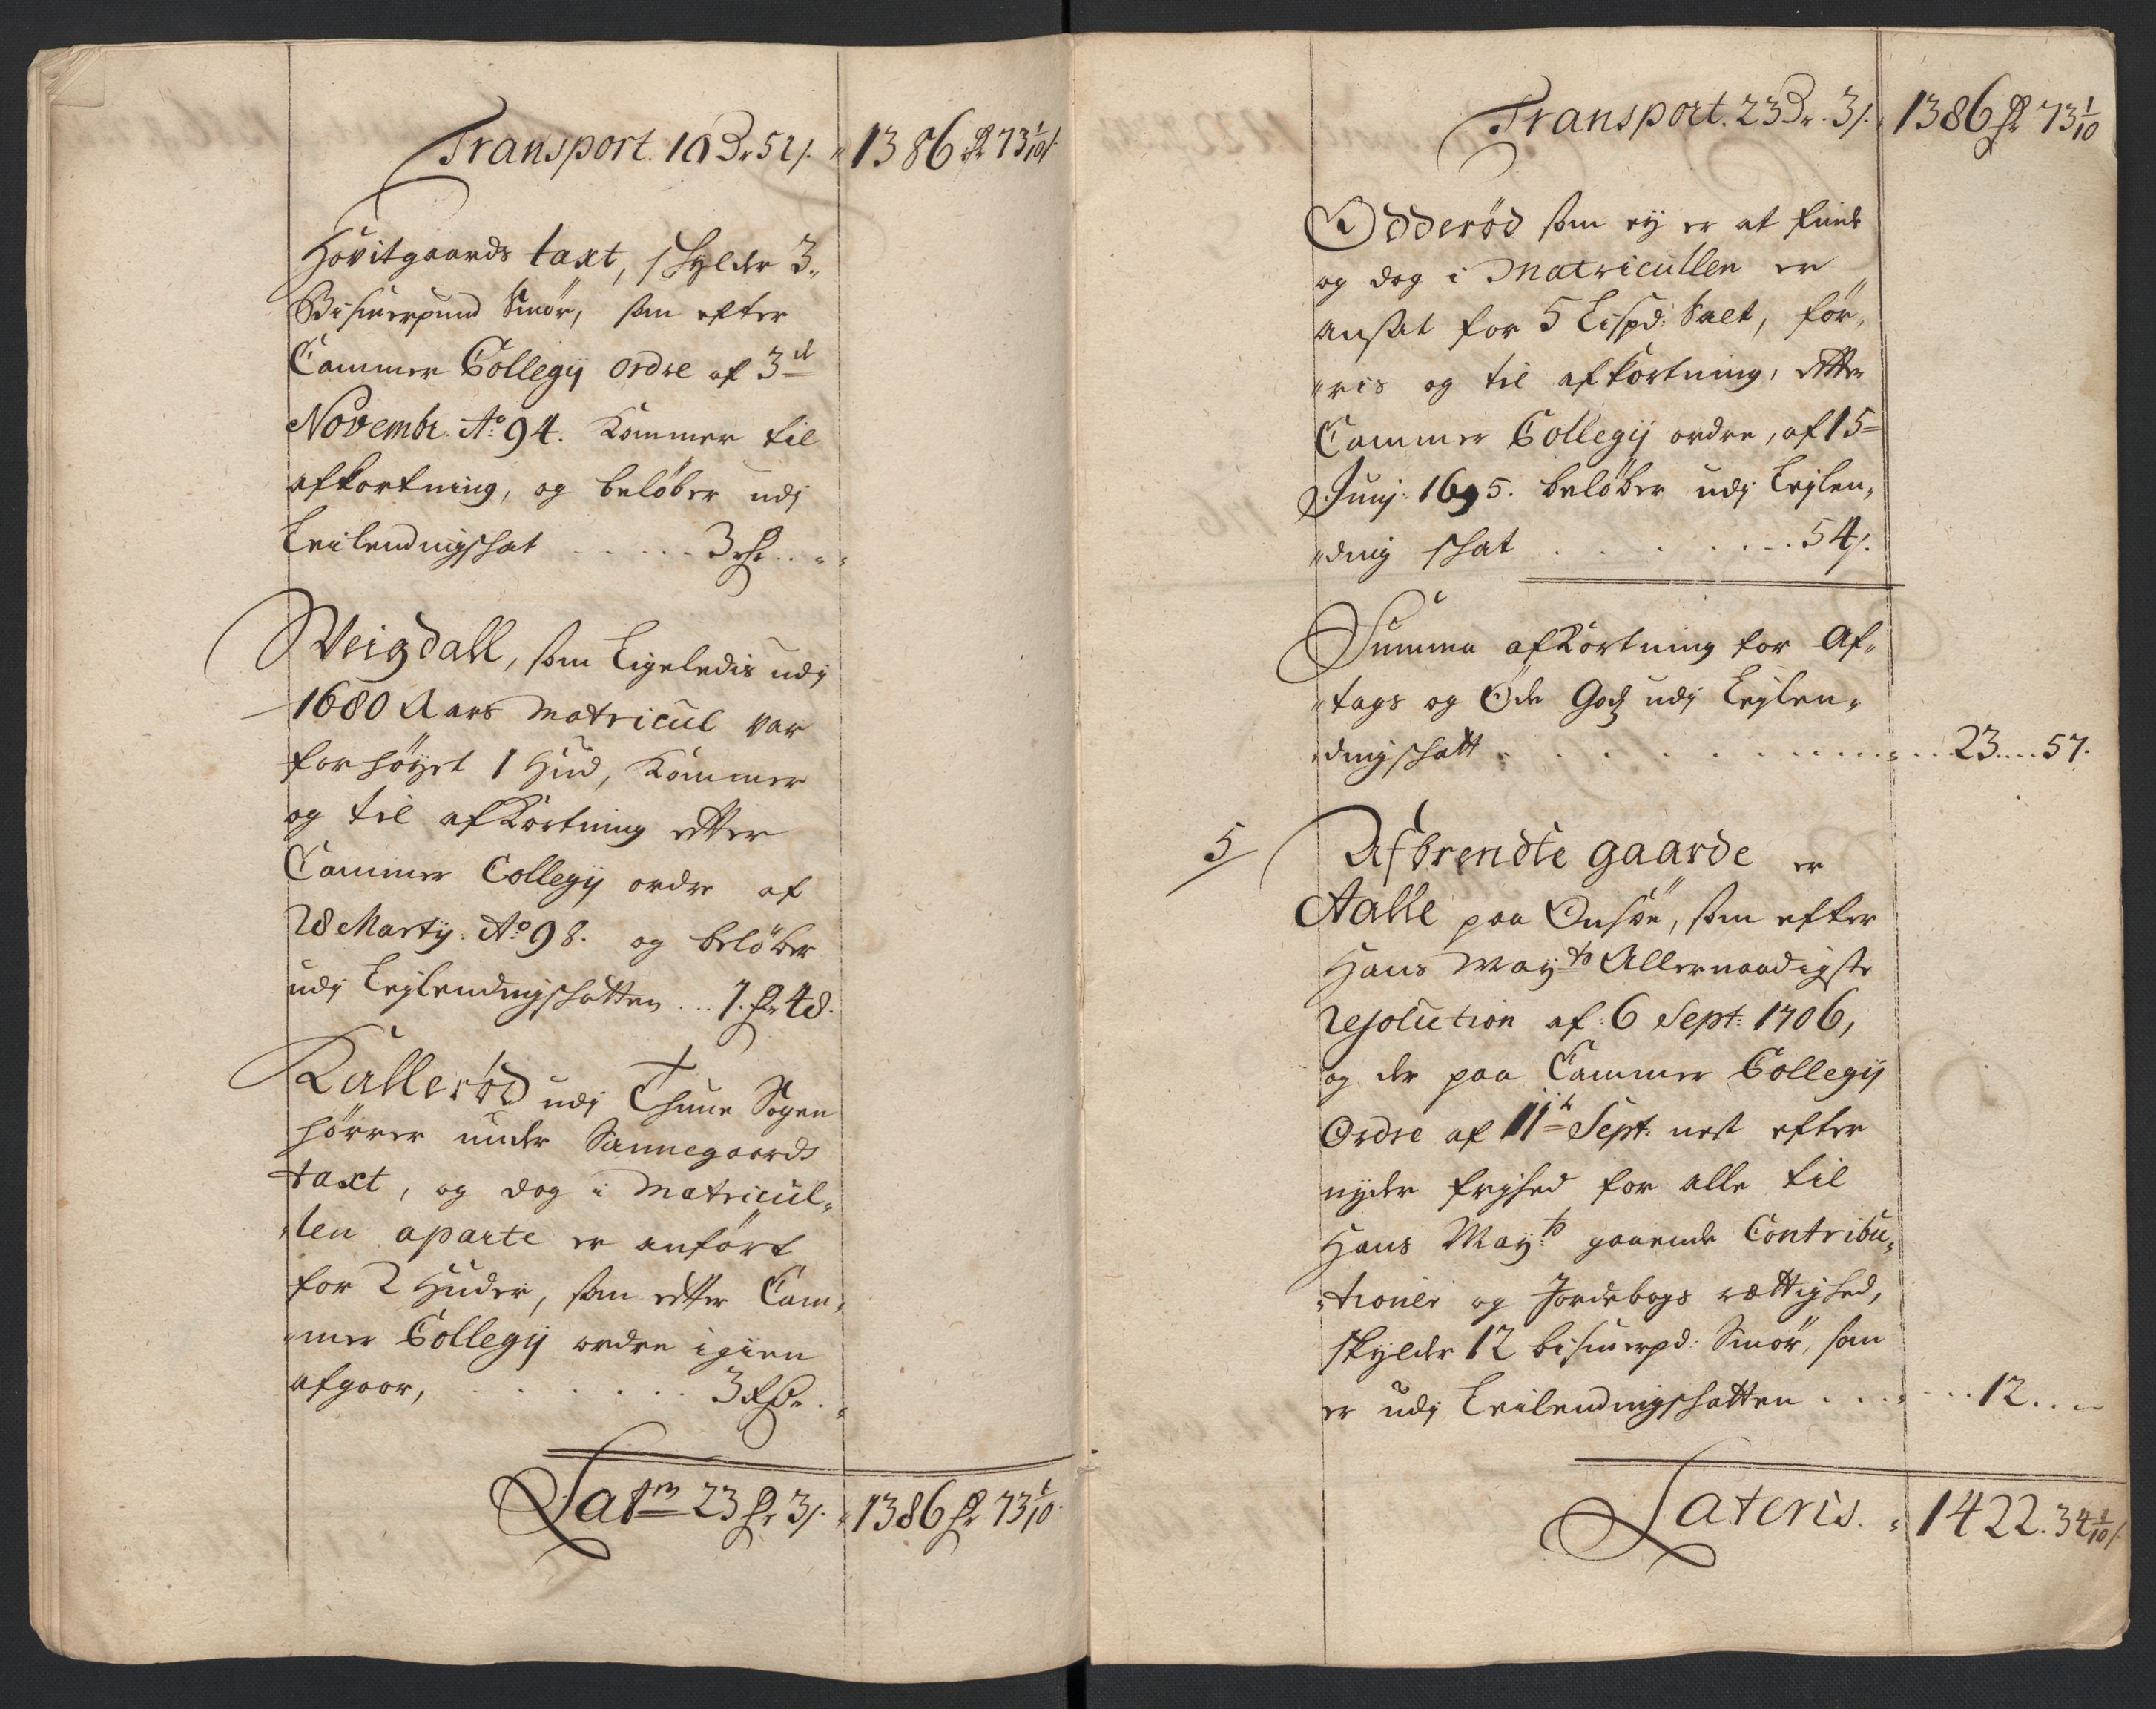 Transport. 15 Dr 51 s. " 1386 Rdr 73 1/10 s.
Hovitgaards taxt, schylder 3„
Bismerpund Smör, som efter
Cammer Collegij ordre af 3de
Novembr. Ao 94. kommer til
afkortning, og beløber udj
Leilendingschat . . . . . 3 Rdr . . "
Weigdall, som ligeledis udj
1680 Aars Matricul var
forhöyet 1 Hud, kommer
og til afkortning efter
Cammer Collegij ordre af
28 Martij. Ao 98. og belöber
udj Leylendingschatten . . 1. Rdr 48.
Kalleröd udj Thune Sogen
hörrer under Sannegaards
taxt, og dog i Matricul„
„len aparte er anfört
for 2 Huder, som efter Cam„
„mer Collegij ordre igien
afgaar, . . . . . . 3 Rdr. "
Latrs 23 Rdr 3 s. " 1386 Rdr 73 1/10.
Transport. 23 Dr. 3 s. 1386 Rdr 73 1/10
Odderöd som ey er at finde
og dog i Matricullen er
ansat for 5 Lispd: Salt, för„
„res og til afkortning, efter
Cammer Collegij ordre, af 15=
Junij: 1695. belöber udj Leylen„
„ding schat . . . . . . . 54 s.
Summa afkortning for Af„
„tags og Öde Godz udj Leylen„
„dingschatt . . . . . . . . . . . . . 23 .... 57.
5/ Afbrendte gaarde er
Aalle paa Onsöe, som efter
Hans Mayts Allernaadigste
resolution af. 6 Sept: 1706,
og der paa Cammer Collegij
Ordre af 11te Sept: nest efter
nyder frihed for alle til
Hans Mayts gaaende Contribu„
„tioner og Jordebogs rettighed,
skylder 12 bismerpd: Smör, som
er udj Leilendingschatten . . . . . . 12 . . "
Lateris. " 1422. 34 1/10 s